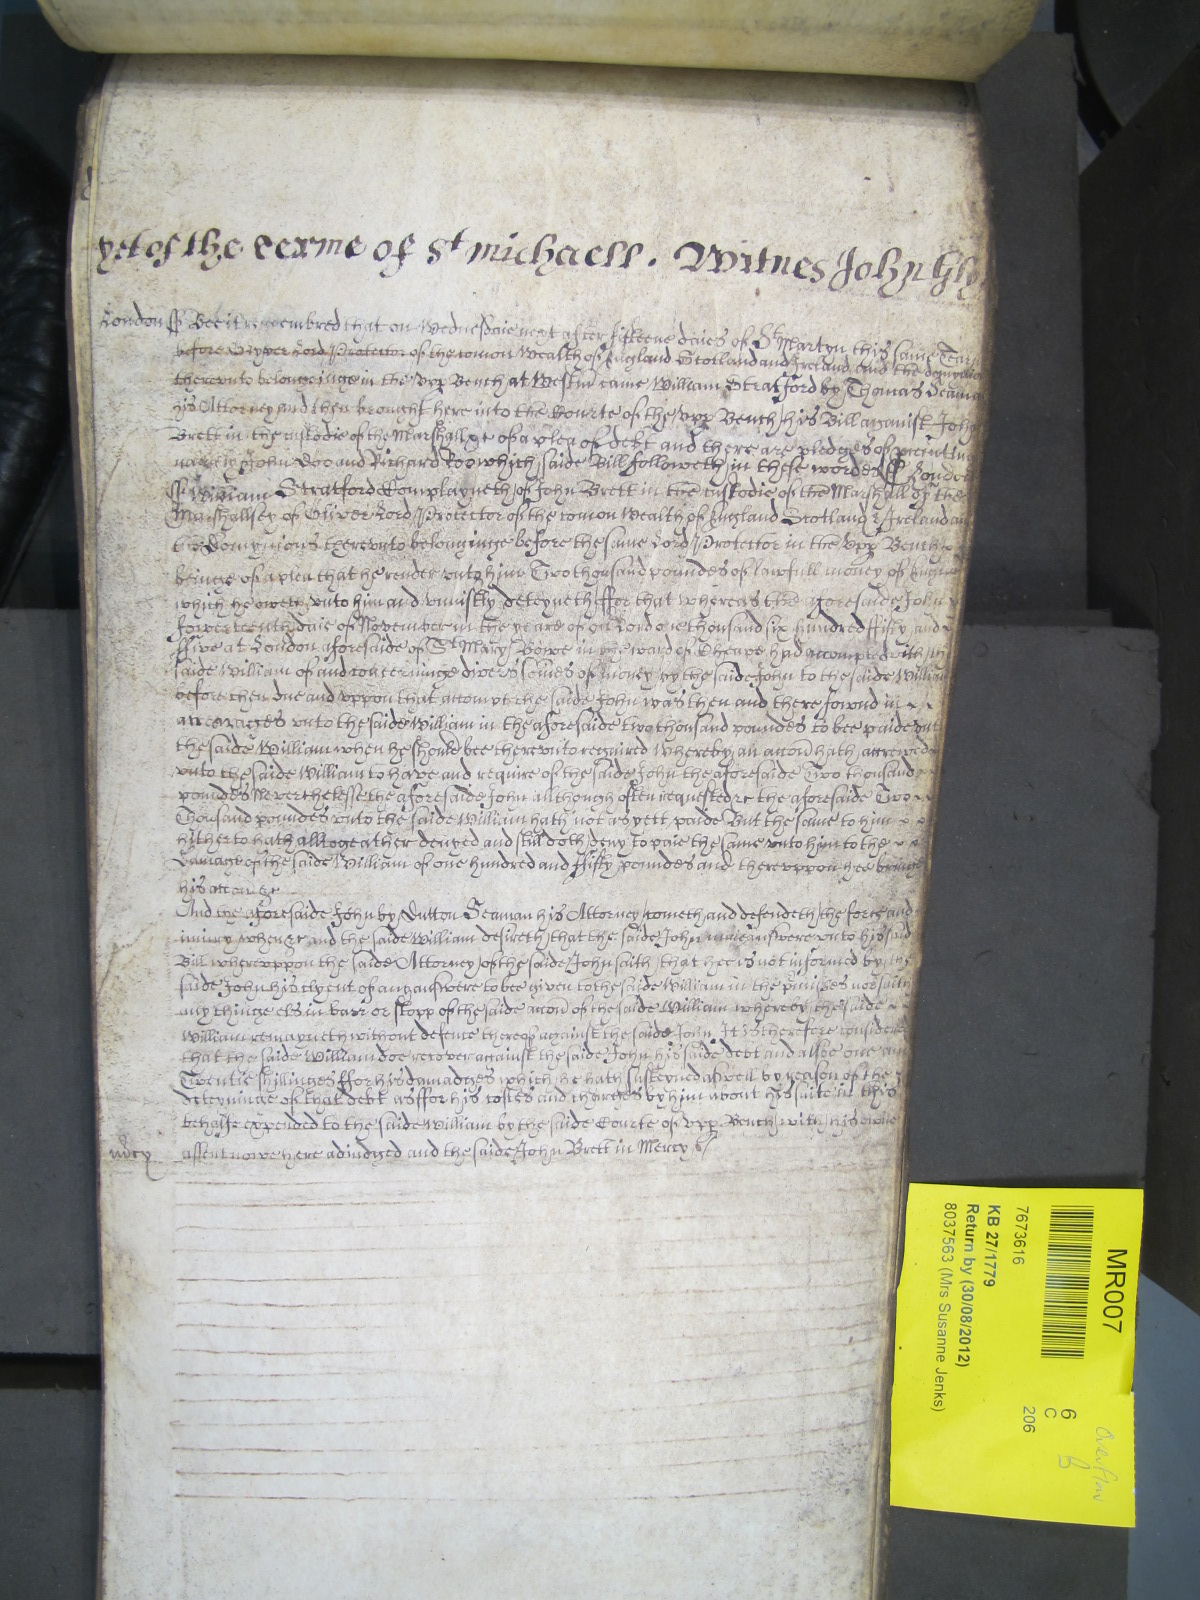 yet of the Terme of St Michaell. Witnes John Gly
London ss Bee it remembred that on Wednesdaie next after fifteene daies of St Martyn this same Tearm
before Oliver Lord Protector of the comon Wealth of England Scotland and Ireland and the dominions
therevnto belonginge in the Vpp Bench at Westm came William Stratford by Thomas Seaman
his Attorney and then brought here into the Courte of the Vpp Bench his Bill against John
Brett in the custodie of the Marshall &c of a plea of debt and there are pledges of
namely John Doo and Richard Roo which saide Bill followeth in these wordes ss London
ss William Stratford Complayneth of John Brett in the custodie of the Marshall of the
Marshallsey of Oliver Lord Protector of the comon Wealth of England Scotland & Ireland and
the Dominions therevnto belonginge before the same Lord Protector in the Vpp Bench
beinge of a plea that he render vnto him Two thousand poundes of lawfull money of
which he oweth vnto him and vniustly deteyneth ffor that whereas the aforesaide John
fowerteenth daie of November in the yeare of our Lord one thousand six hundred fifty and
ffive at London aforesaide of St Mary Bowe in the ward of Cheape had accompted with the
saide William of and concerninge divers somes of money by the saide John to the saide William
before then due and vppon that accompt the saide John was then and there fownd in
arrearages vnto the saide William in the aforesaide two thousand poundes to bee paide vnt
the saide William when he should bee therevnto required Whereby an accon hath accrewed
vnto the saide William to have and require of the saide John the aforesaide Two thousand
poundes Neverthelesse the aforesaide John allthough often requested &c the aforesaide Two
Thousand poundes vnto the saide William hath not as yett paide But the same to him
hitherto hath alltogeather denyed and still doth deny to paie the same vnto him to the
Damage of the saide William of one hundred and ffifty poundes and therevppon hee bringe
his accon &c
And the aforesaide John by Dutton Seaman his Attorney cometh and defendeth the force and
iniury when &c and the saide William desireth that the saide John maie answere vnto his said
Bill wherevppon the saide Attorney of the saide John saith that hee is not informed by the
saide John his clyent of any answere to bee given to the saide William in the pmisses nor saith
any thinge els in barr or stopp of the saide accon of the saide William whereby the saide
William remayneth without defence thereof against the saide John It is therefore considered
that the saide William doe recover against the saide John his saide debt and allsoe one
Twentie shillinges ffor his damadges which he hath susteyned aswell by reason of the
deteyninge of that debt as ffor his costes and charges by him about his suite in this
behalfe expended to the saide William by the saide Courte of Vpp Bench with his owne
mercy assent nowe here adiudged and the saide John Brett in Mercy &c
MR007
7673616
KB 27/1779
Return by (30/08/2012)
8037563 (Mrs Susanne Jenks)
6
C
206
Overflow
B